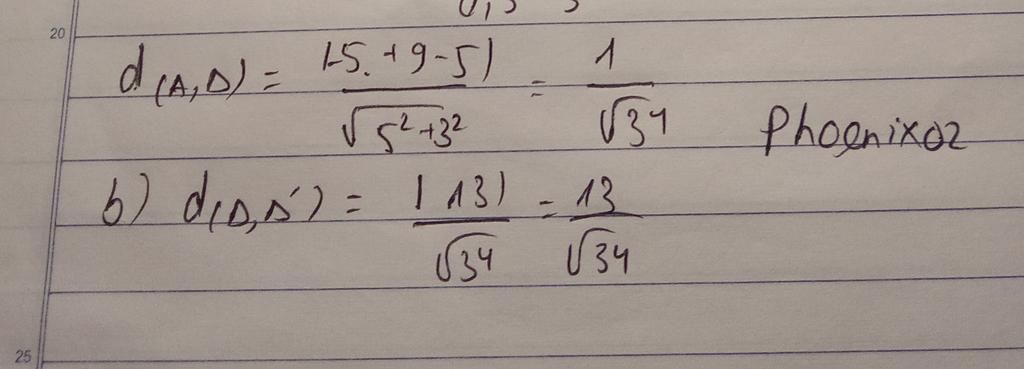 20
d(A,Δ) = |-5.+9-5| / √5²+3² = 1 / √34
Phoenixoz
b) d(Δ,Δ') = |13| / √34 = 13 / √34
25